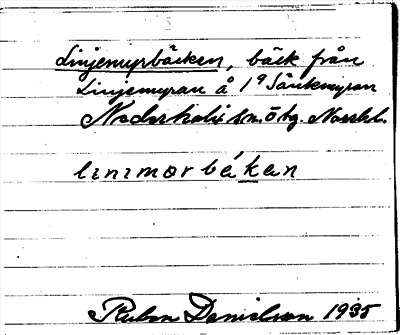 Linjemyrbäcken, bäck från
Linjemyran å 1º Sänkmyran
Nederkalix sn. Ö bg. Norrb.
linimorbékan
Ruben Danielson 1935